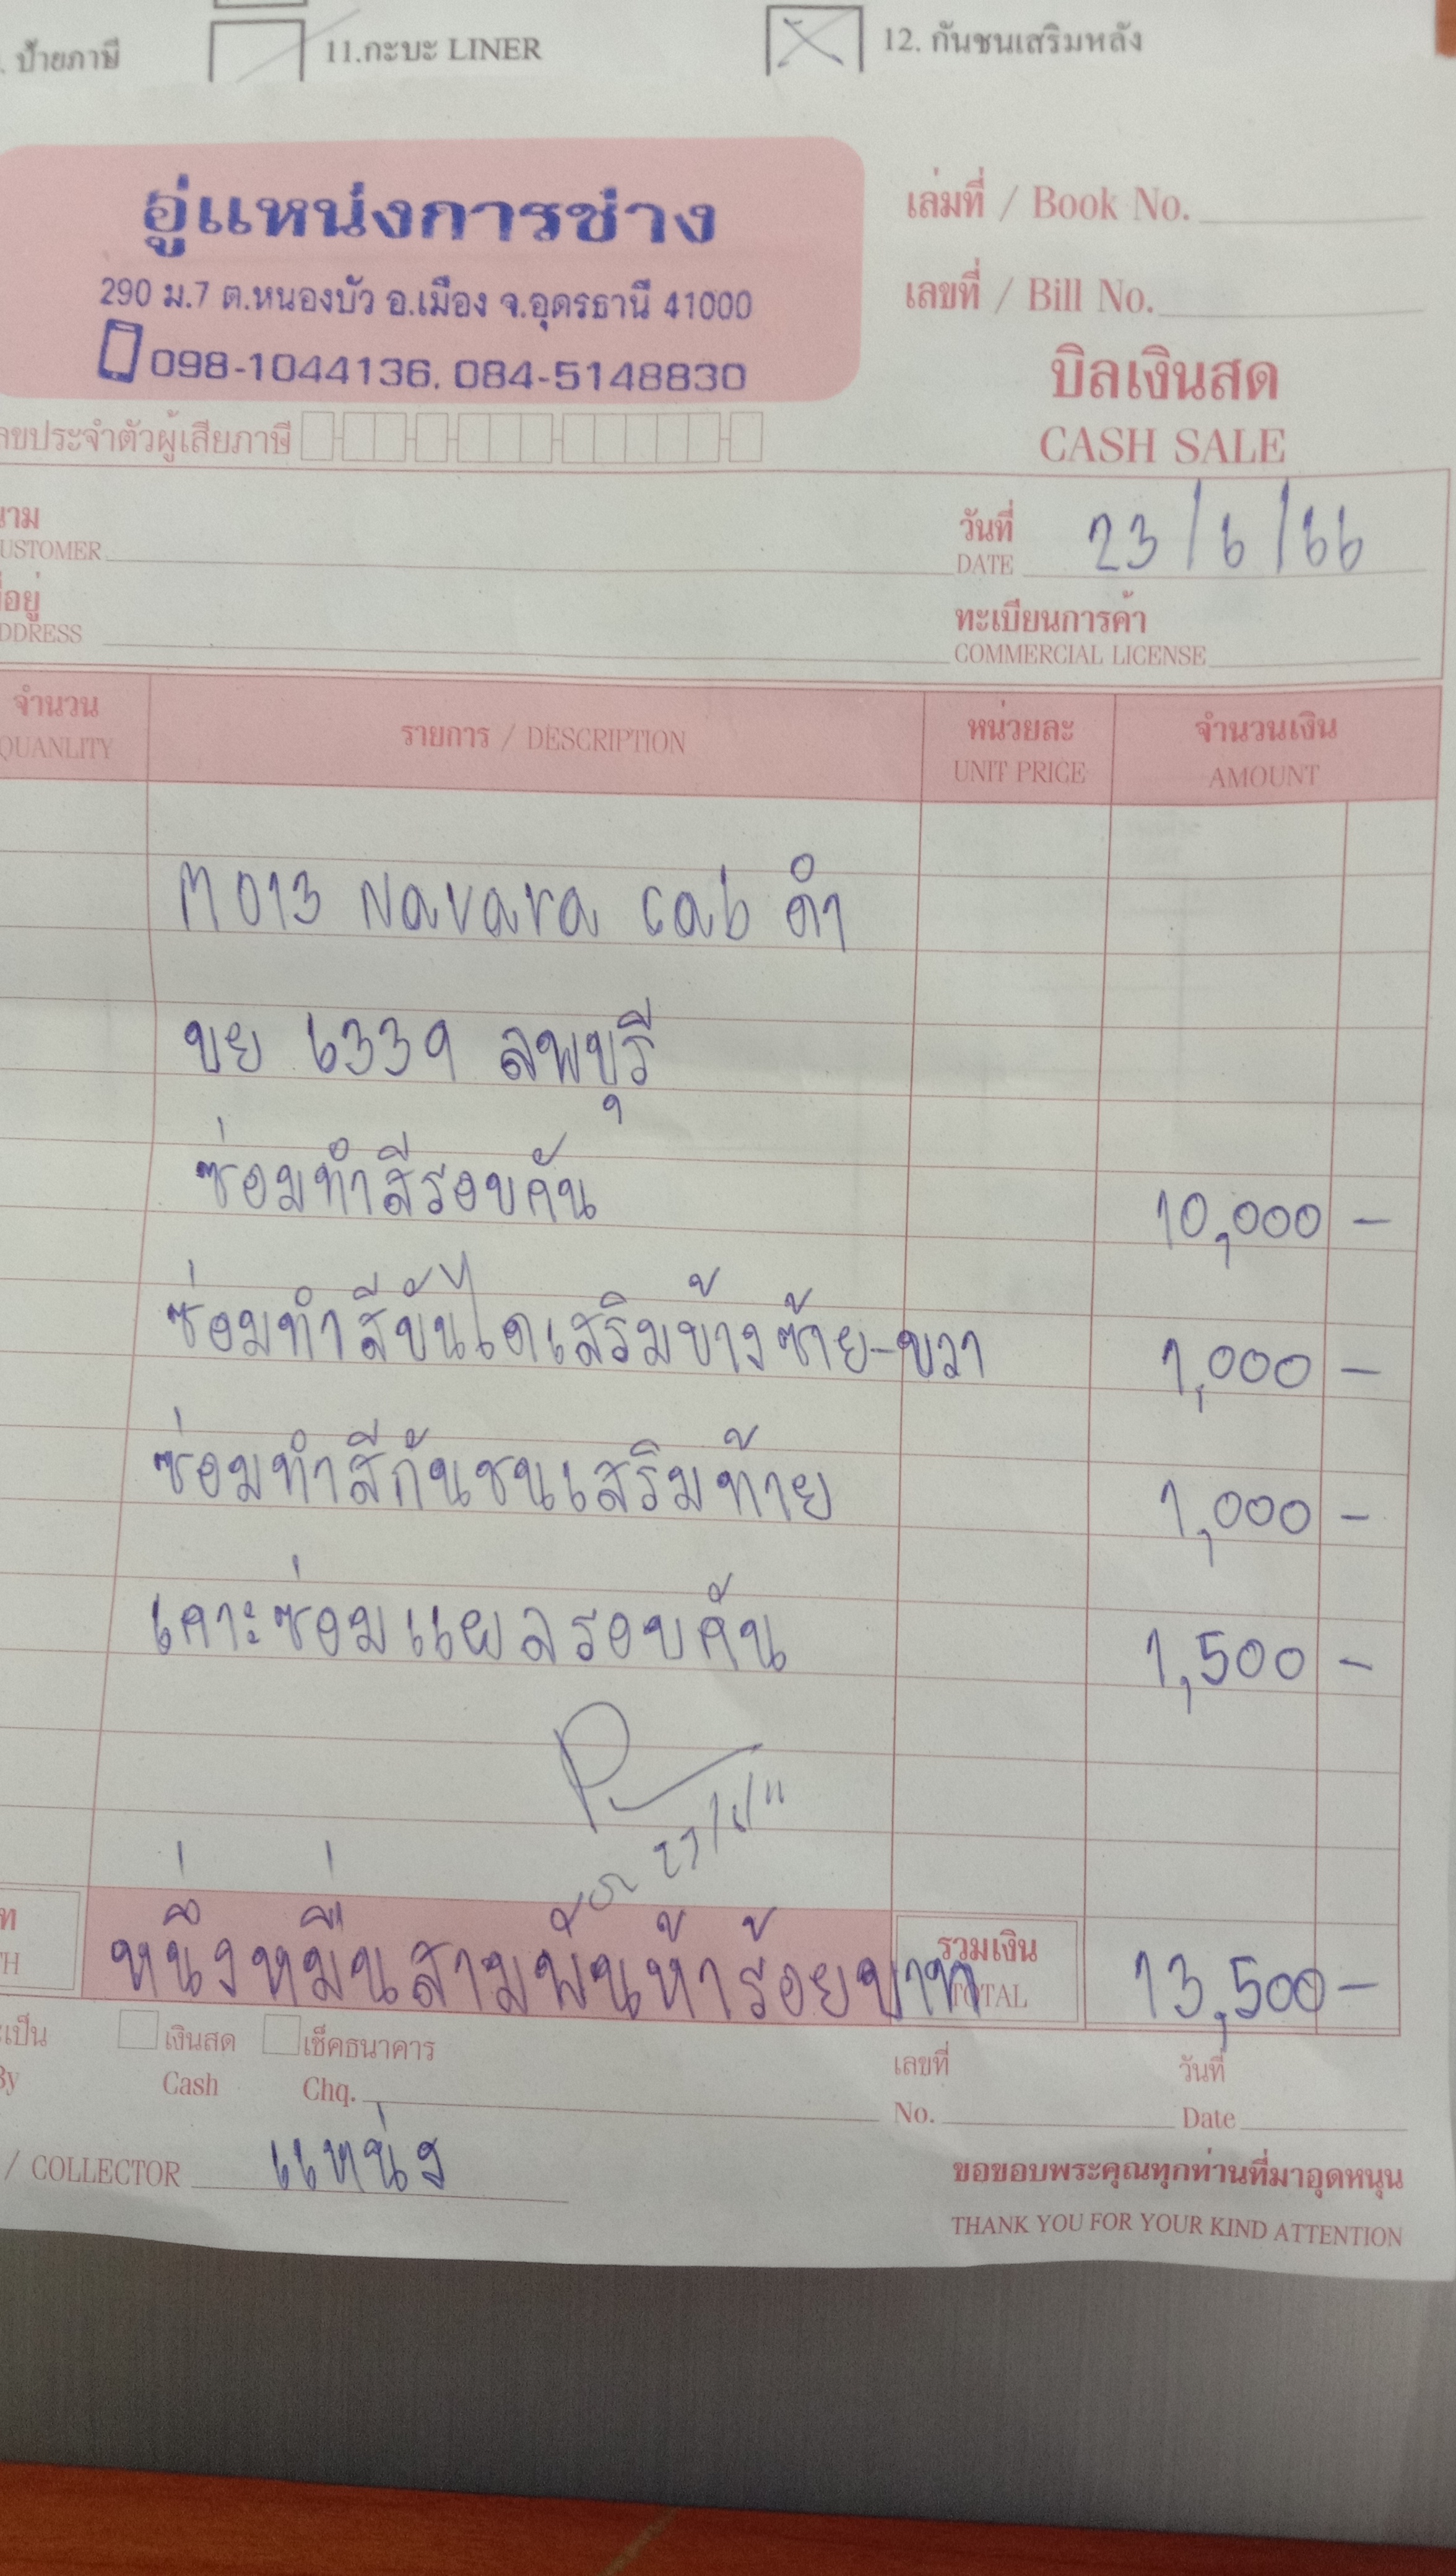 ป้ายภาษี 11.กะบะ LINER 12. กันชนเสริมหลัง
อู่แหน่งการช่าง
290 ม.7 ต.หนองบัว อ.เมือง จ.อุดรธานี 41000
098-1044136, 084-5148830
เล่มที่ / Book No.
เลขที่ / Bill No.
บิลเงินสด
CASH SALE
ลขประจำตัวผู้เสียภาษี
นาม
USTOMER
วันที่ 23/6/66
DATE
ที่อยู่
DDRESS
ทะเบียนการค้า
COMMERCIAL LICENSE
จำนวน รายการ / DESCRIPTION หน่วยละ จำนวนเงิน
QUANLITY UNIT PRICE AMOUNT
M013 Navara cab ดำ
ขย 6339 ลพบุรี
ซ่อมทำสีรอบคัน 10,000 -
ซ่อมทำสีบันไดเสริมข้างซ้าย-ขวา 1,000 -
ซ่อมทำสีกันชนเสริมท้าย 1,000 -
เคาะซ่อมแผลรอบคัน 1,500 -
หนึ่งหมื่นสามพันห้าร้อยบาท รวมเงิน 13,500 -
TH TOTAL
ะเป็น เงินสด เช็คธนาคาร เลขที่ วันที่
By Cash Chq. No. Date
/ COLLECTOR แหน่ง
ขอขอบพระคุณทุกท่านที่มาอุดหนุน
THANK YOU FOR YOUR KIND ATTENTION